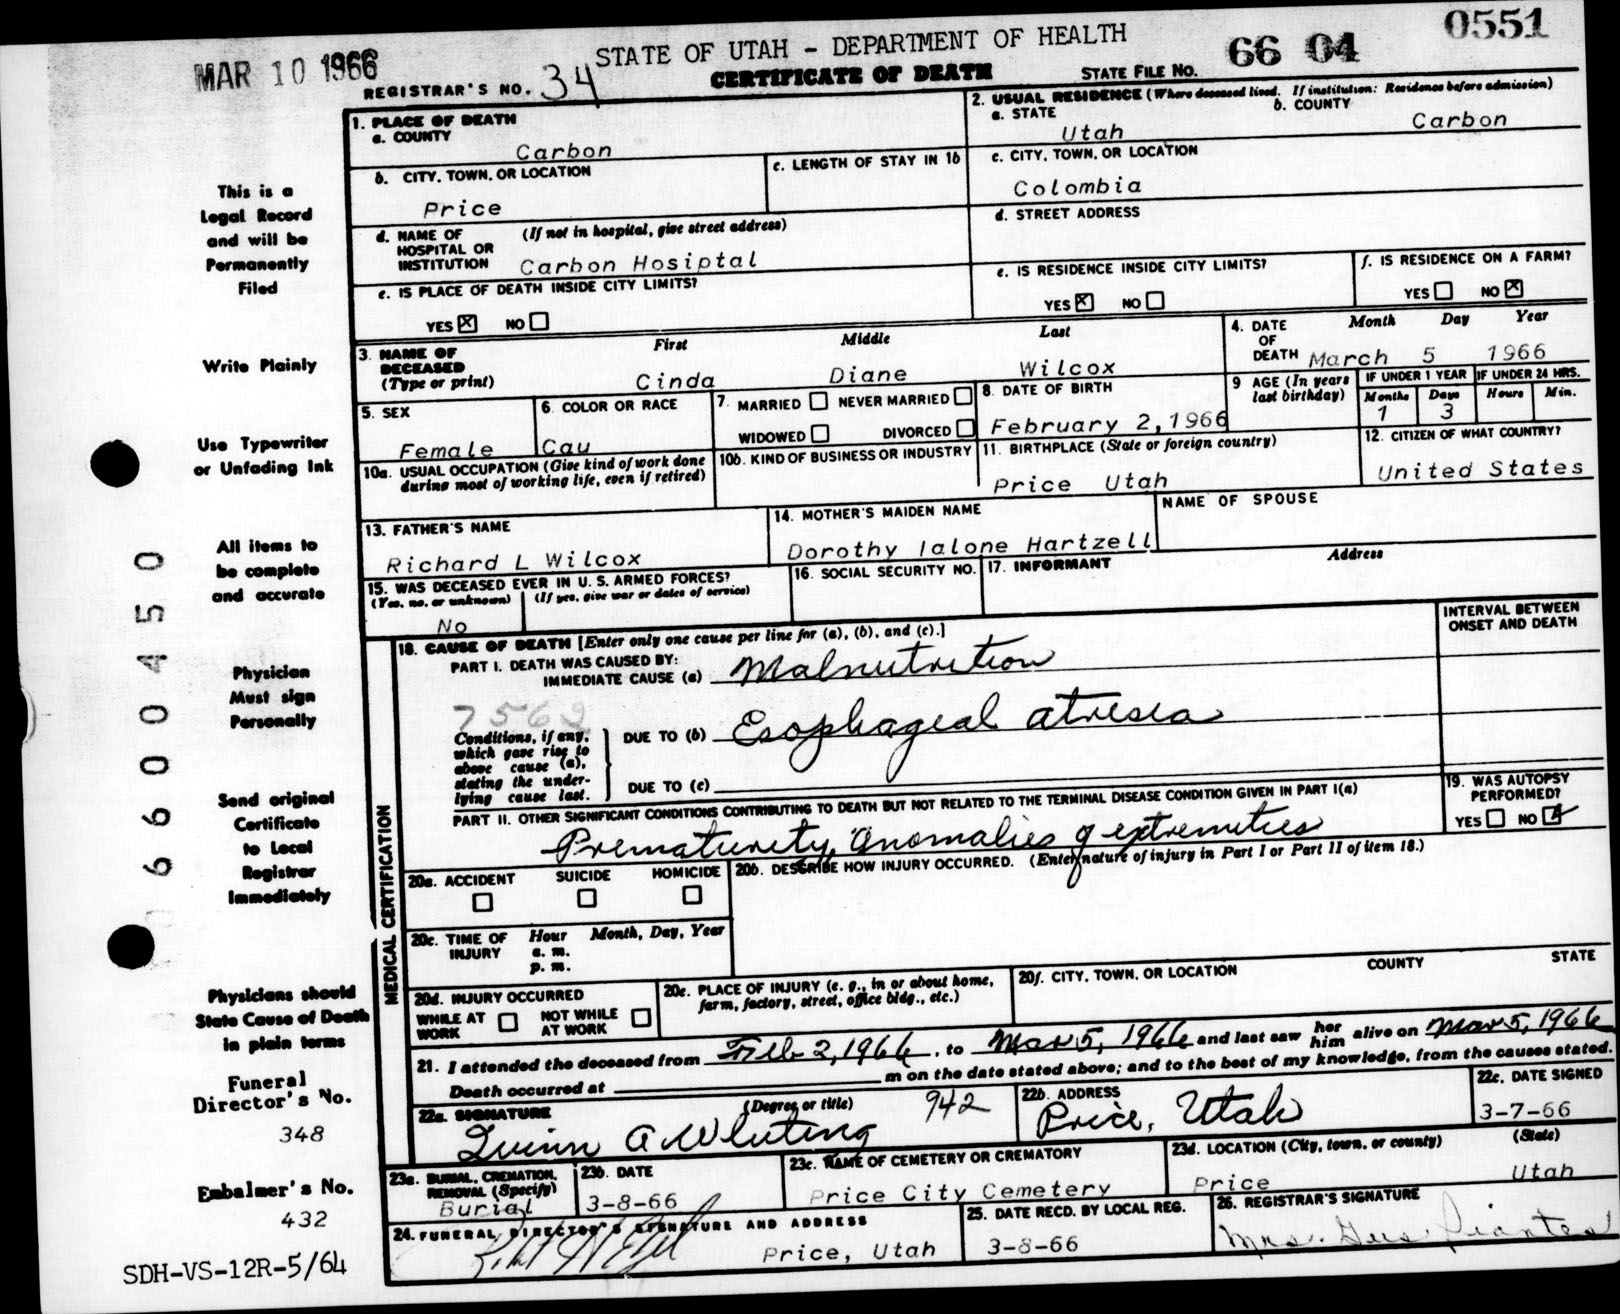 MAR 10 1966
STATE OF UTAH - DEPARTMENT OF HEALTH
66 04 0551
REGISTRAR'S NO. 34
CERTIFICATE OF DEATH
STATE FILE NO.
1. PLACE OF DEATH
a. COUNTY
Carbon
2. USUAL RESIDENCE (Where deceased lived. If institution: Residence before admission)
a. STATE
Utah
b. COUNTY
Carbon
b. CITY, TOWN, OR LOCATION
Price
c. LENGTH OF STAY IN 1b
c. CITY, TOWN, OR LOCATION
Colombia
d. NAME OF HOSPITAL OR INSTITUTION
(If not in hospital, give street address)
Carbon Hosiptal
d. STREET ADDRESS
e. IS PLACE OF DEATH INSIDE CITY LIMITS?
YES X NO
e. IS RESIDENCE INSIDE CITY LIMITS?
YES X NO
f. IS RESIDENCE ON A FARM?
YES NO X
3. NAME OF DECEASED (Type or print)
First Middle Last
Cinda Diane Wilcox
4. DATE OF DEATH
Month Day Year
March 5 1966
5. SEX
Female
6. COLOR OR RACE
Cau
7. MARRIED NEVER MARRIED
WIDOWED DIVORCED
8. DATE OF BIRTH
February 2,1966
9 AGE (In years last birthday)
IF UNDER 1 YEAR IF UNDER 24 HRS.
Months Days Hours Min.
1 3
10a. USUAL OCCUPATION (Give kind of work done during most of working life, even if retired)
10b. KIND OF BUSINESS OR INDUSTRY
11. BIRTHPLACE (State or foreign country)
Price Utah
12. CITIZEN OF WHAT COUNTRY?
United States
13. FATHER'S NAME
Richard L Wilcox
14. MOTHER'S MAIDEN NAME
Dorothy Ialone Hartzell
NAME OF SPOUSE
15. WAS DECEASED EVER IN U. S. ARMED FORCES?
(Yes, no, or unknown) (If yes, give war or dates of service)
No
16. SOCIAL SECURITY NO.
17. INFORMANT Address
MEDICAL CERTIFICATION
18. CAUSE OF DEATH [Enter only one cause per line for (a), (b), and (c).]
INTERVAL BETWEEN ONSET AND DEATH
PART I. DEATH WAS CAUSED BY:
IMMEDIATE CAUSE (a) Malnutrition
7562
Conditions, if any, which gave rise to above cause (a), stating the underlying cause last.
DUE TO (b) Esophageal atresia
DUE TO (c)
PART II. OTHER SIGNIFICANT CONDITIONS CONTRIBUTING TO DEATH BUT NOT RELATED TO THE TERMINAL DISEASE CONDITION GIVEN IN PART I(a)
Prematurity, anomalies of extremities
19. WAS AUTOPSY PERFORMED?
YES NO X
20a. ACCIDENT SUICIDE HOMICIDE
20b. DESCRIBE HOW INJURY OCCURRED. (Enter nature of injury in Part I or Part II of item 18.)
20c. TIME OF INJURY
Hour Month, Day, Year
a. m.
p. m.
20d. INJURY OCCURRED
WHILE AT WORK NOT WHILE AT WORK
20e. PLACE OF INJURY (e. g., in or about home, farm, factory, street, office bldg., etc.)
20f. CITY, TOWN, OR LOCATION COUNTY STATE
21. I attended the deceased from Feb 2, 1966, to Mar 5, 1966 and last saw her him alive on Mar 5, 1966
Death occurred at m on the date stated above; and to the best of my knowledge, from the causes stated.
22a. SIGNATURE (Degree or title)
Quinn A Whiting 942
22b. ADDRESS
Price, Utah
22c. DATE SIGNED
3-7-66
23a. BURIAL, CREMATION, REMOVAL (Specify)
Burial
23b. DATE
3-8-66
23c. NAME OF CEMETERY OR CREMATORY
Price City Cemetery
23d. LOCATION (City, town, or county) (State)
Price Utah
24. FUNERAL DIRECTOR'S SIGNATURE AND ADDRESS
Price, Utah
25. DATE RECD. BY LOCAL REG.
3-8-66
26. REGISTRAR'S SIGNATURE
Mrs. Gus
This is a
Legal Record
and will be
Permanently
Filed
Write Plainly
Use Typewriter
or Unfading Ink
All items to
be complete
and accurate
Physician
Must sign
Personally
Send original
Certificate
to Local
Registrar
Immediately
Physicians should
State Cause of Death
in plain terms
Funeral
Director's No.
348
Embalmer's No.
432
SDH-VS-12R-5/64
6600450